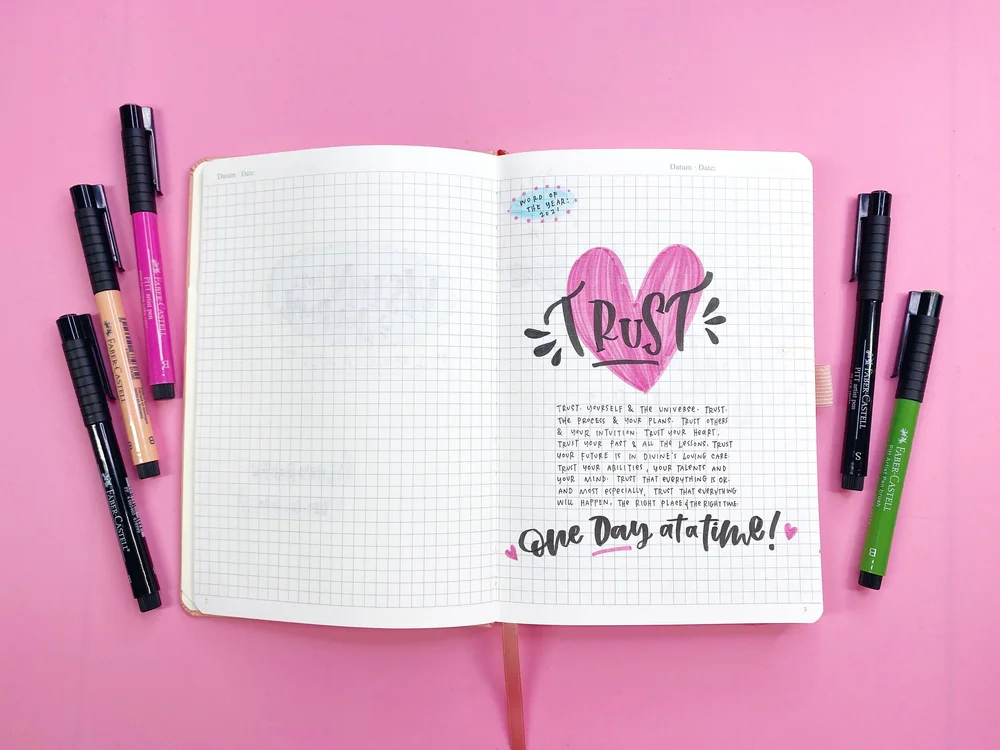 Datum · Date:
Datum · Date:
WORD OF
THE YEAR:
2021
TRUST
TRUST. YOURSELF & THE UNIVERSE. TRUST.
THE PROCESS & YOUR PLANS. TRUST OTHERS
& YOUR INTUITION. TRUST YOUR HEART.
TRUST YOUR PAST & ALL THE LESSONS. TRUST
YOUR FUTURE IS IN DIVINE'S LOVING CARE.
TRUST YOUR ABILITIES, YOUR TALENTS AND
YOUR MIND. TRUST THAT EVERYTHING IS OK.
AND MOST ESPECIALLY, TRUST THAT EVERYTHING
WILL HAPPEN, THE RIGHT PLACE & THE RIGHT TIME.
One Day at a time!
3
FABER-CASTELL
PITT artist pen
B
FABER-CASTELL
B
FABER-CASTELL
FABER-CASTELL
PITT artist pen
S
FABER-CASTELL
B